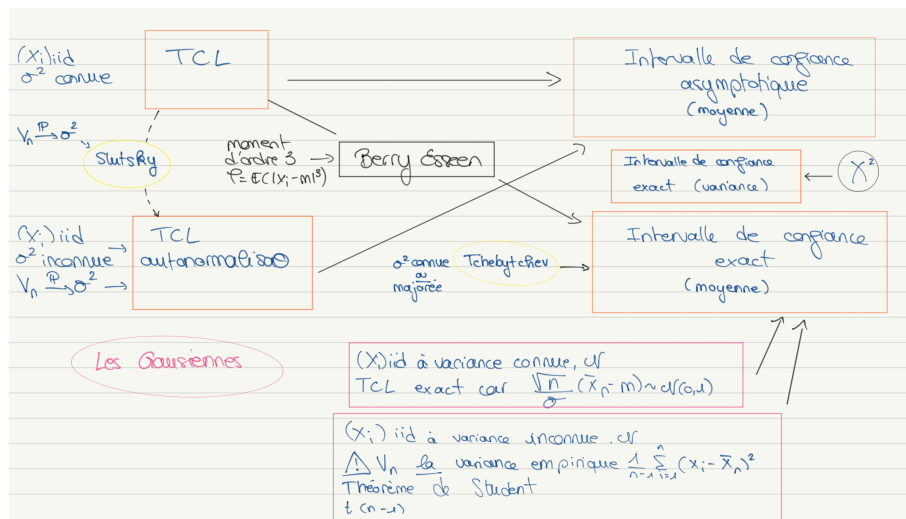 (Xi) iid
σ² connue
TCL
Intervalle de confiance
asymptotique
(moyenne)
Vn —ℙ→ σ²
Slutsky
moment
d'ordre 3
ρ = E(|Xi - m|³)
Berry Esseen
Intervalle de confiance
exact (variance)
χ²
(Xi) iid
σ² inconnue
Vn —ℙ→ σ²
TCL
autonormalisé
σ² connue
ou
majorée
Tchebytchev
Intervalle de confiance
exact
(moyenne)
Les Gaussiennes
(Xi) iid à variance connue, N
TCL exact car √n/σ (X̄n - m) ~ N(0,1)
(Xi) iid à variance inconnue, N
⚠ Vn la variance empirique 1/(n-1) Σ_{i=1}^{n} (Xi - X̄n)²
Théorème de Student
t(n-1)